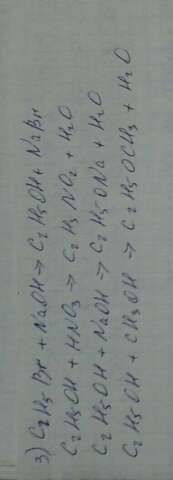 3) C₂H₅Br + NaOH → C₂H₅OH + NaBr
C₂H₅OH + HNO₃ → C₂H₅NO₂ + H₂O
C₂H₅OH + NaOH → C₂H₅ONa + H₂O
C₂H₅OH + CH₃OH → C₂H₅OCH₃ + H₂O